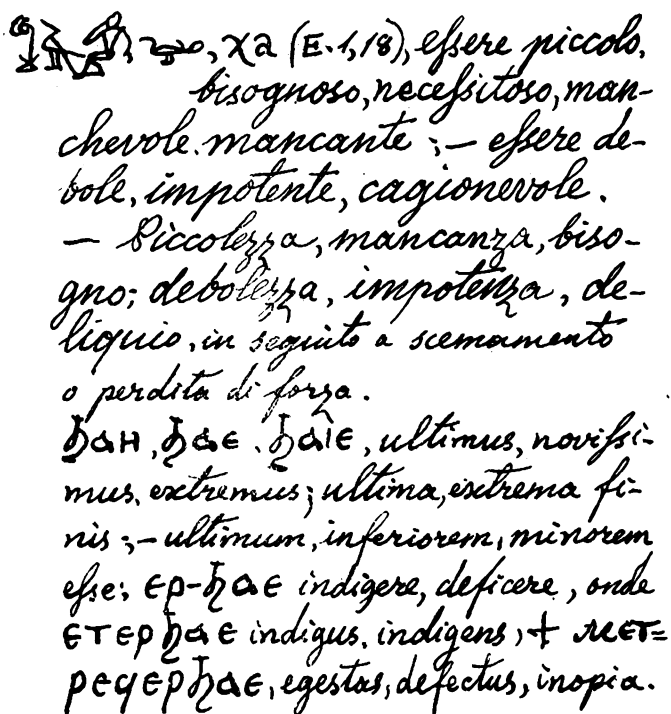 , χa (E. 1,18), essere piccolo,
bisognoso, necessitoso, man-
chevole. mancante ;— essere de-
bole, impotente, cagionevole.
— Piccolezza, mancanza, biso-
gno; debolezza, impotenza, de-
liquio, in seguito a scemamento
o perdita di forza.
ϧⲁⲏ, ϧⲁⲉ. ϧⲁⲓⲉ, ultimus, novissi-
mus, extremus; ultima, extrema fi-
nis ;— ultimum, inferiorem, minorem
esse; ⲉⲣ-ϧⲁⲉ indigere, deficere, onde
ⲉⲧⲉⲣϧⲁⲉ indigus. indigens, + ⲙⲉⲧ=
ⲣⲉϥⲉⲣϧⲁⲉ, egestas, defectus, inopia.